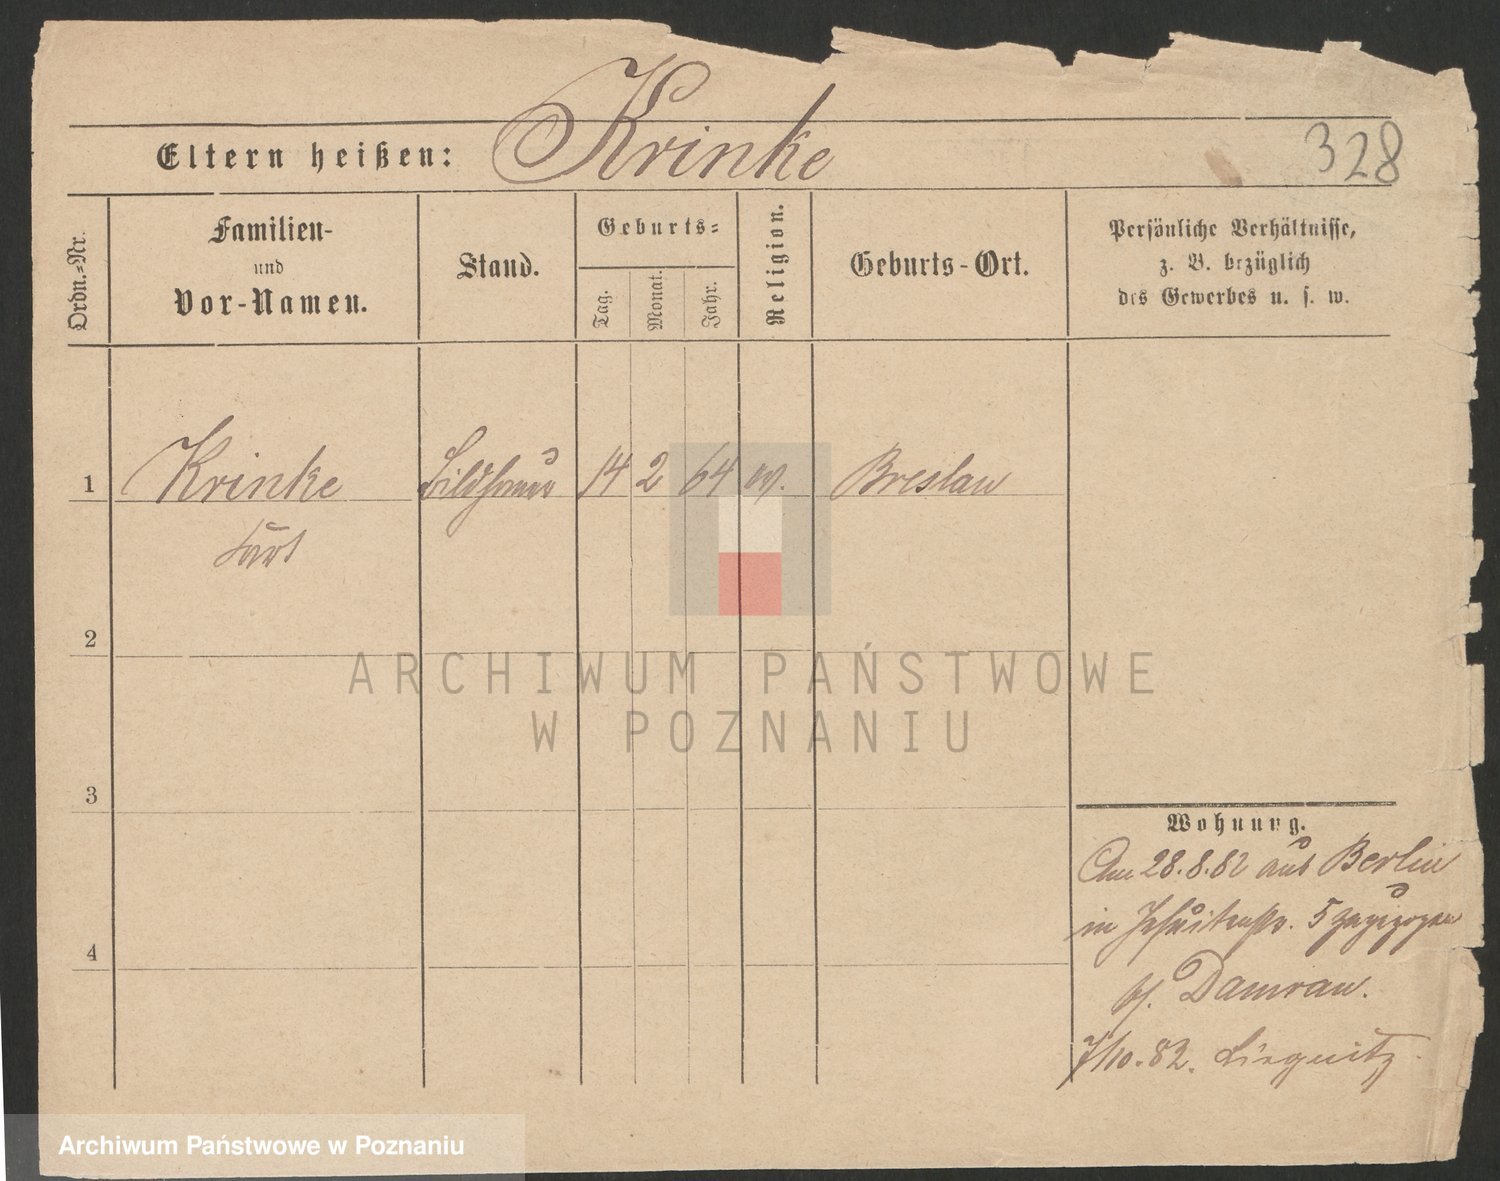 Eltern heißen: Krinke
328
Ordn.=Nr.
Familien-
und
Vor-Namen.
Stand.
Geburts=
Tag.
Monat.
Jahr.
Religion.
Geburts-Ort.
Persönliche Verhältnisse,
z. B. bezüglich
des Gewerbes u. s. w.
1 Krinke Bildhauer 14 2 64 ev. Breslau
Curt
2
3
4
ARCHIWUM PAŃSTWOWE
W POZNANIU
Wohnung.
Am 28.8.82 aus Berlin
in Jesuitenstr. 5 zugezogen
b/. Damrau.
7/10.82. Liegnitz.
Archiwum Państwowe w Poznaniu